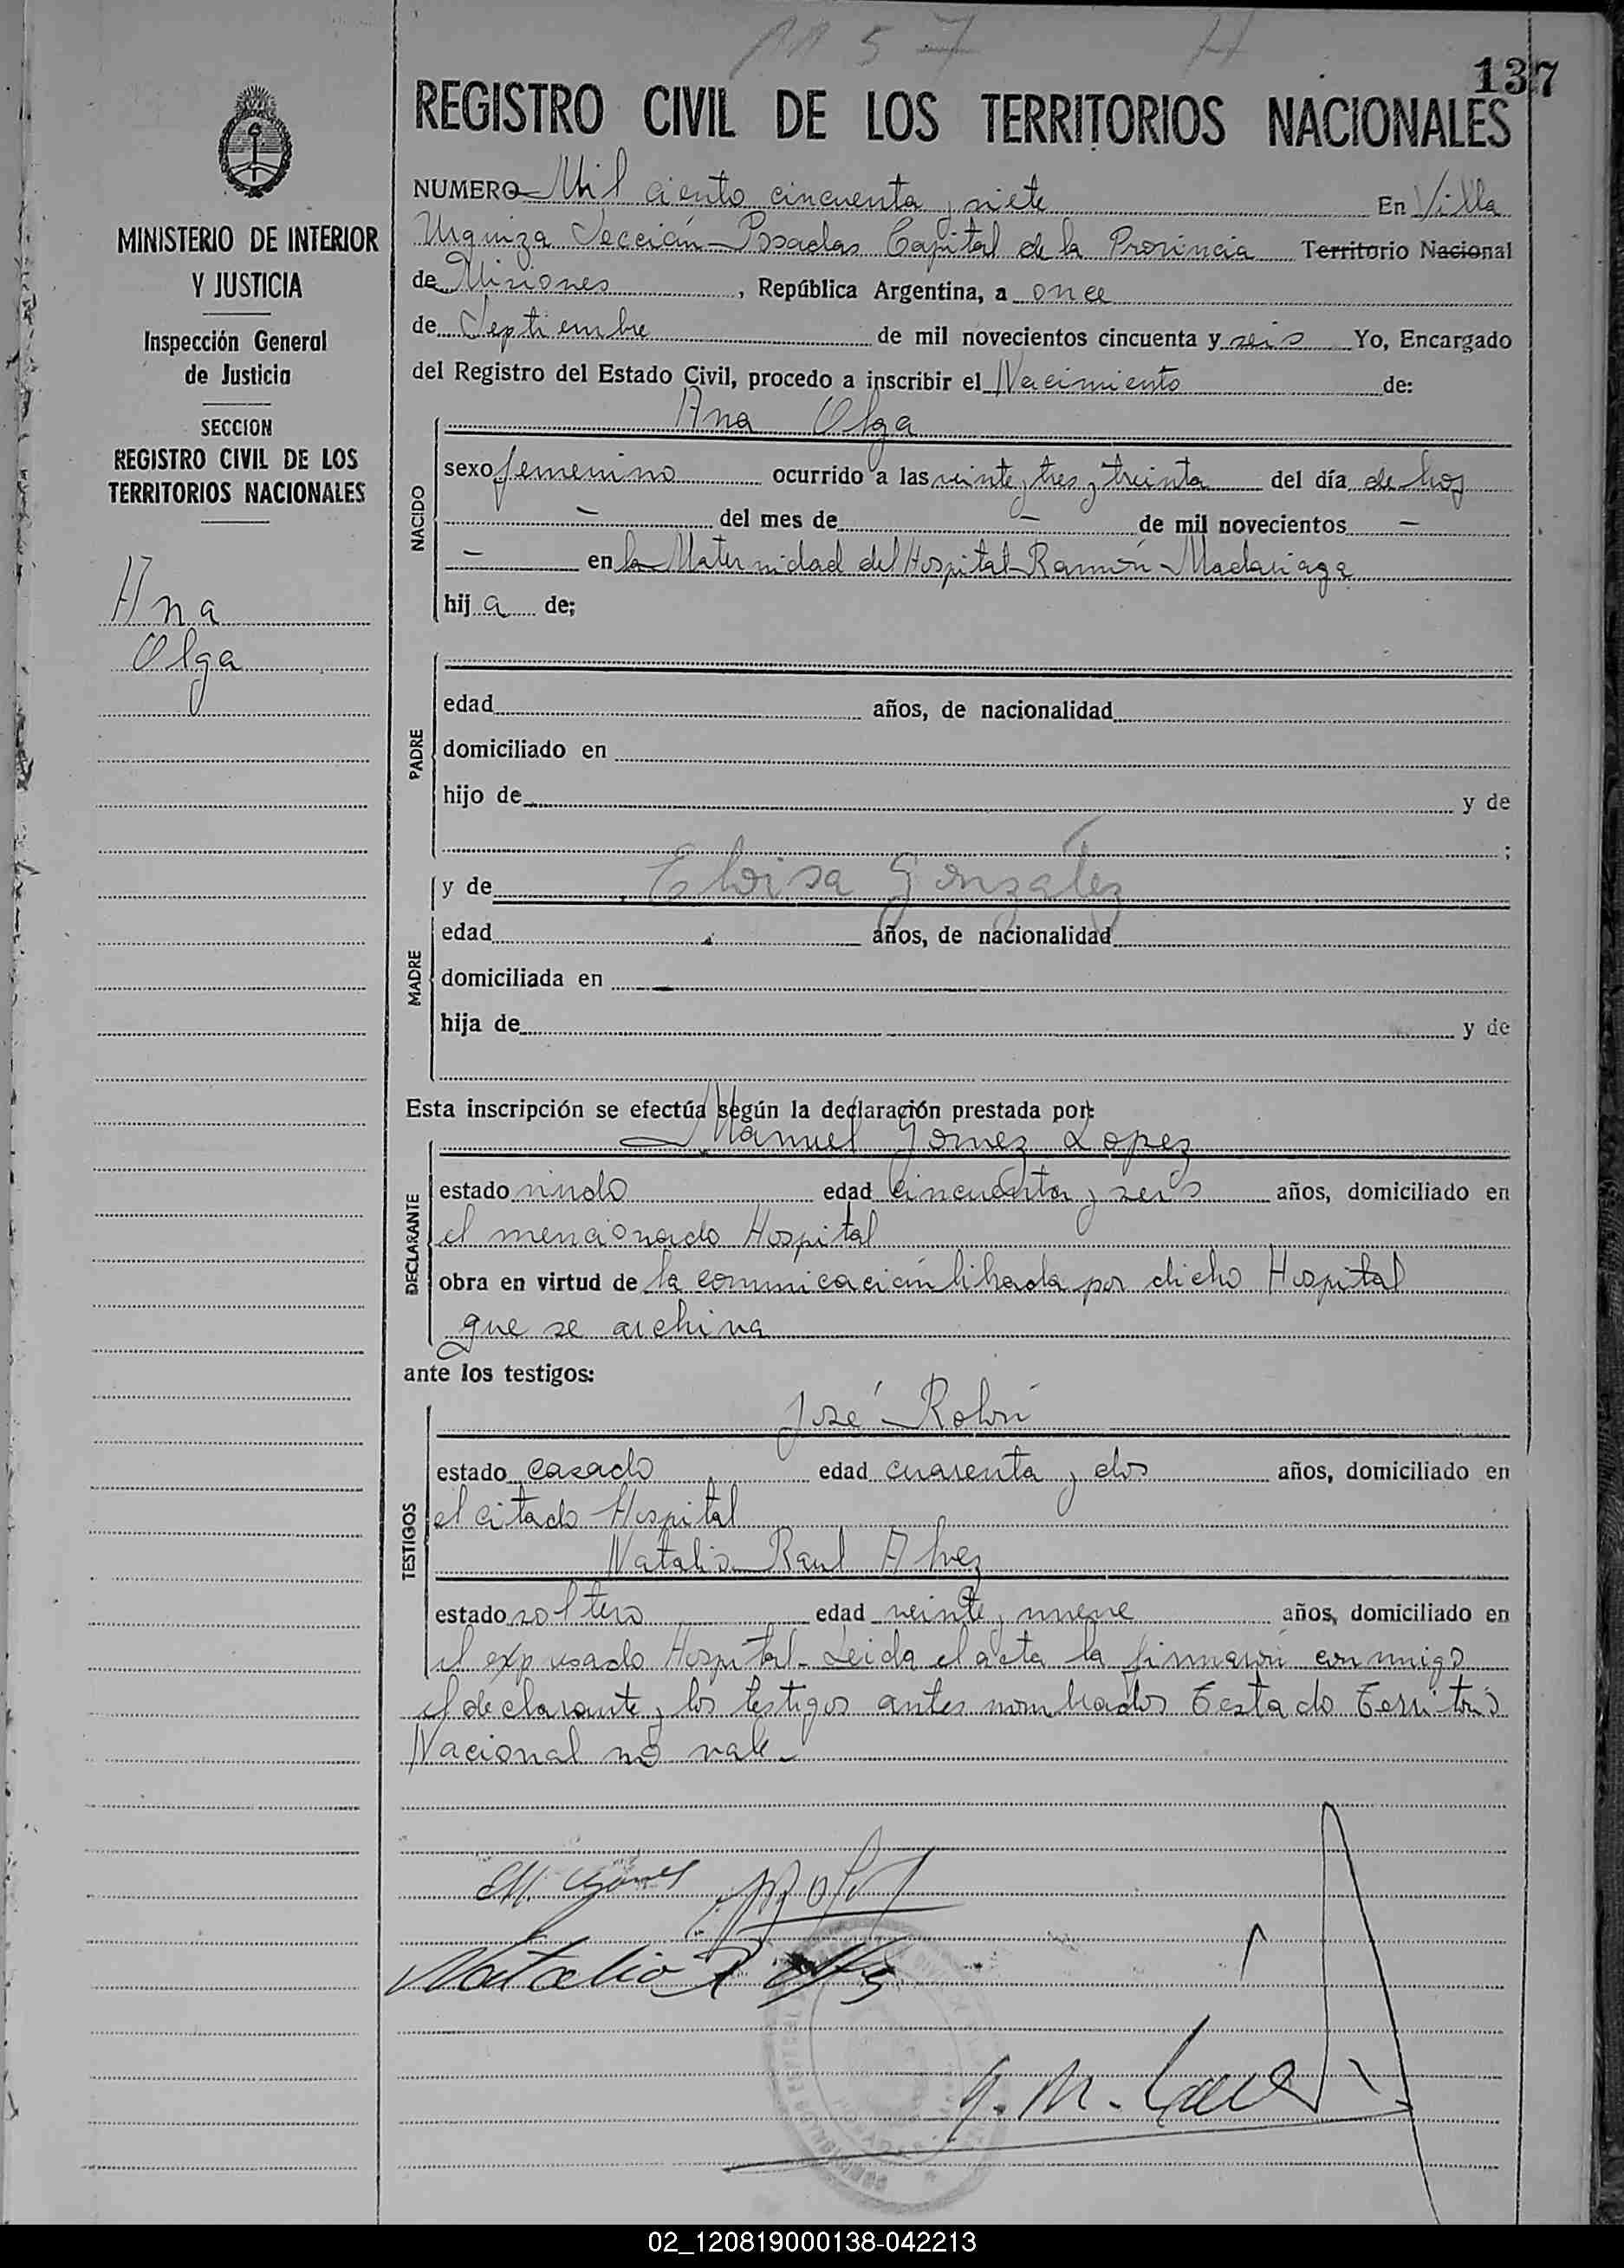 1157 H
137
REGISTRO CIVIL DE LOS TERRITORIOS NACIONALES
MINISTERIO DE INTERIOR
Y JUSTICIA
Inspección General
de Justicia
SECCION
REGISTRO CIVIL DE LOS
TERRITORIOS NACIONALES
Ana
Olga
NUMERO Mil ciento cincuenta y siete En Villa
Urquiza Sección - Posadas Capital de la Provincia Territorio Nacional
de Misiones, República Argentina, a once
de Septiembre de mil novecientos cincuenta y seis Yo, Encargado
del Registro del Estado Civil, procedo a inscribir el Nacimiento de:
NACIDO
Ana Olga
sexo femenino ocurrido a las veinte y tres y treinta del día de hoy
- del mes de - de mil novecientos -
- en la Maternidad del Hospital Ramón Madariaga
hija de;
PADRE
edad años, de nacionalidad
domiciliado en
hijo de y de
;
MADRE
y de Eloisa Gonzalez
edad años, de nacionalidad
domiciliada en
hija de y de
Esta inscripción se efectúa según la declaración prestada por:
DECLARANTE
Manuel Gomez Lopez
estado viudo edad cincuenta y seis años, domiciliado en
el mencionado Hospital
obra en virtud de la comunicación librada por dicho Hospital
que se archiva
ante los testigos:
TESTIGOS
José Rolón
estado casado edad cuarenta y dos años, domiciliado en
el citado Hospital
Natalio Raul Alvez
estado soltero edad veinte y nueve años, domiciliado en
el expresado Hospital - Leida el acta la firmaron conmigo
el declarante y los testigos antes nombrados Testado Territorio
Nacional no vale -
M. Gomez
Natalio R
02_120819000138-042213